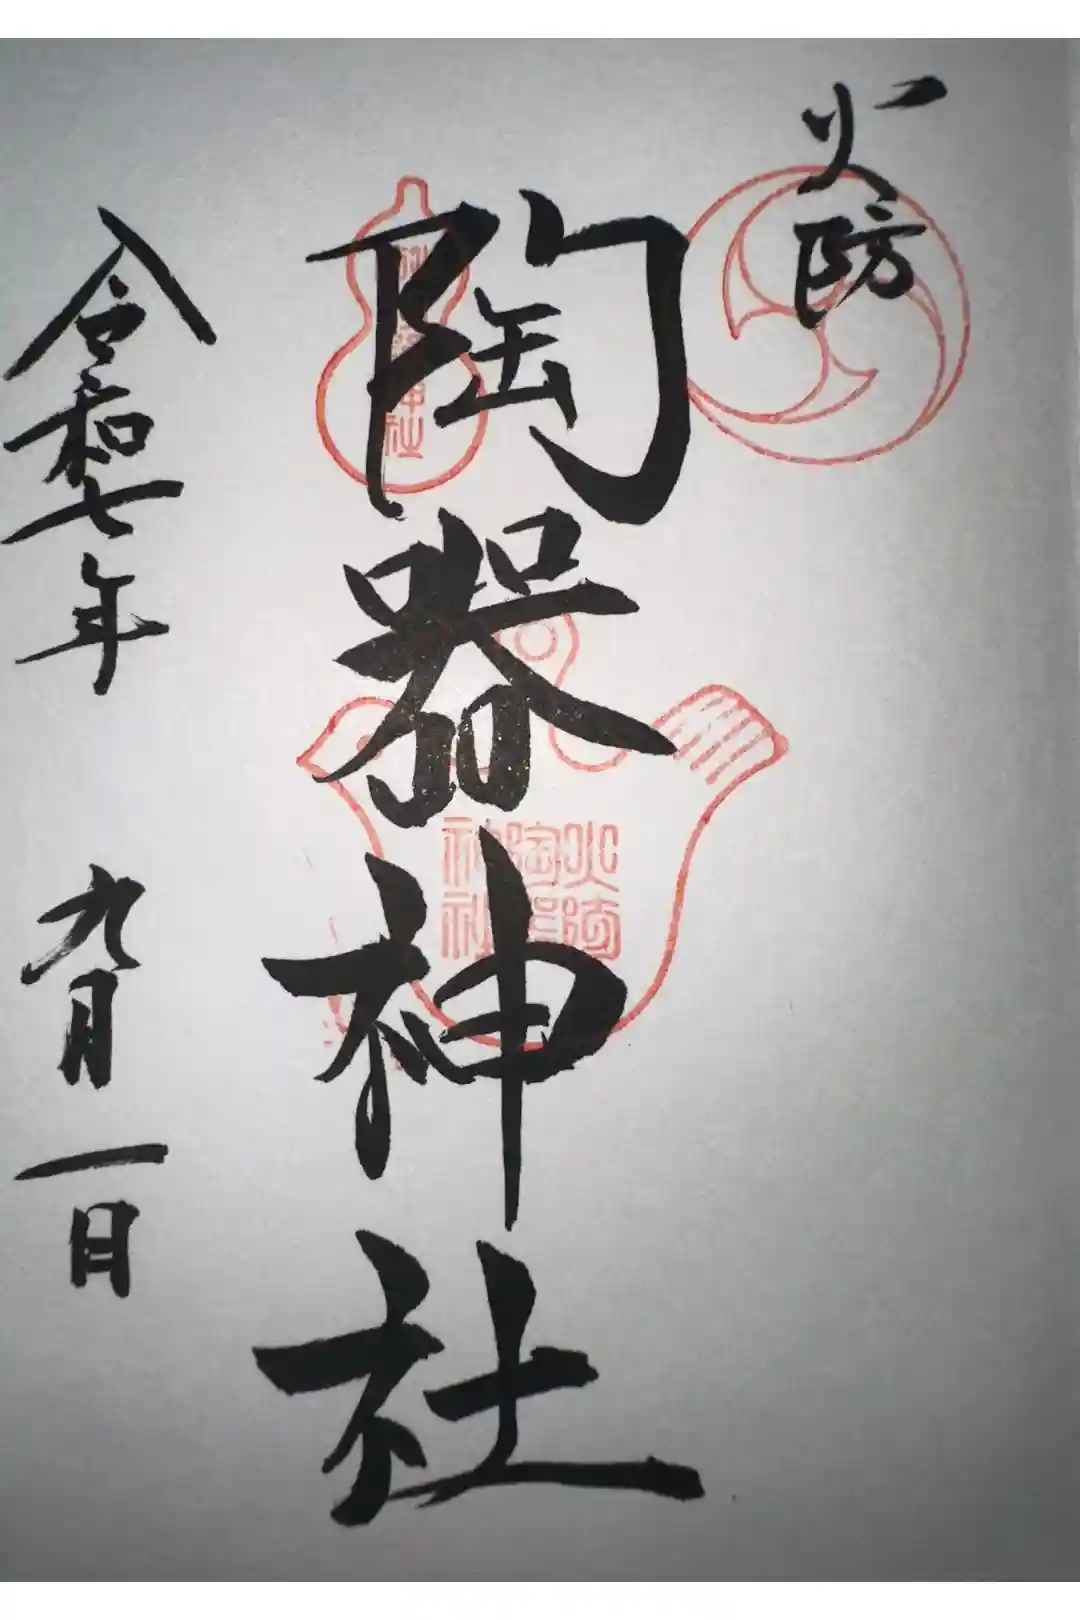 火防
陶器神社
令和七年 九月一日
火防
陶器
神社